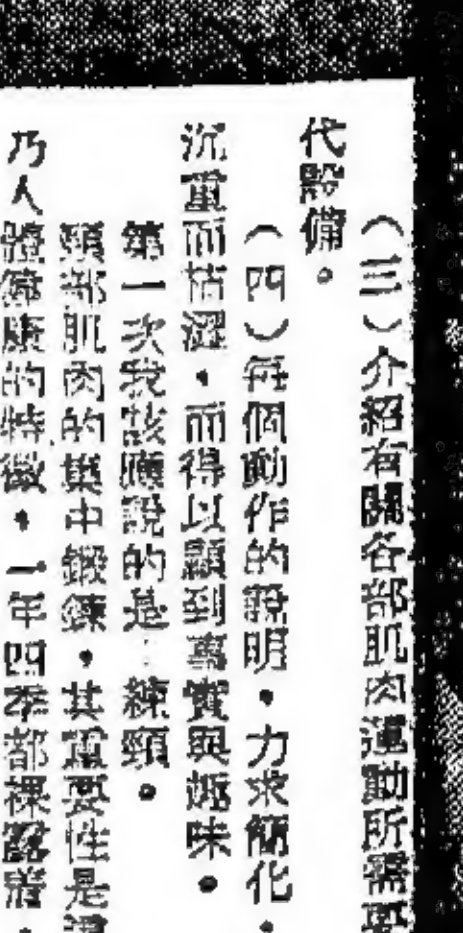 （三）介紹有關各部肌肉運動所需要
代設備。
（四）每個動作的說明，力求簡化，
沉重而枯澀，而得以顯到事實與趣味。
第一次我該應說的是：練頸。
頸部肌肉的集中鍛鍊，其重要性是
乃人體健康的特徵，一年四季都裸露着，